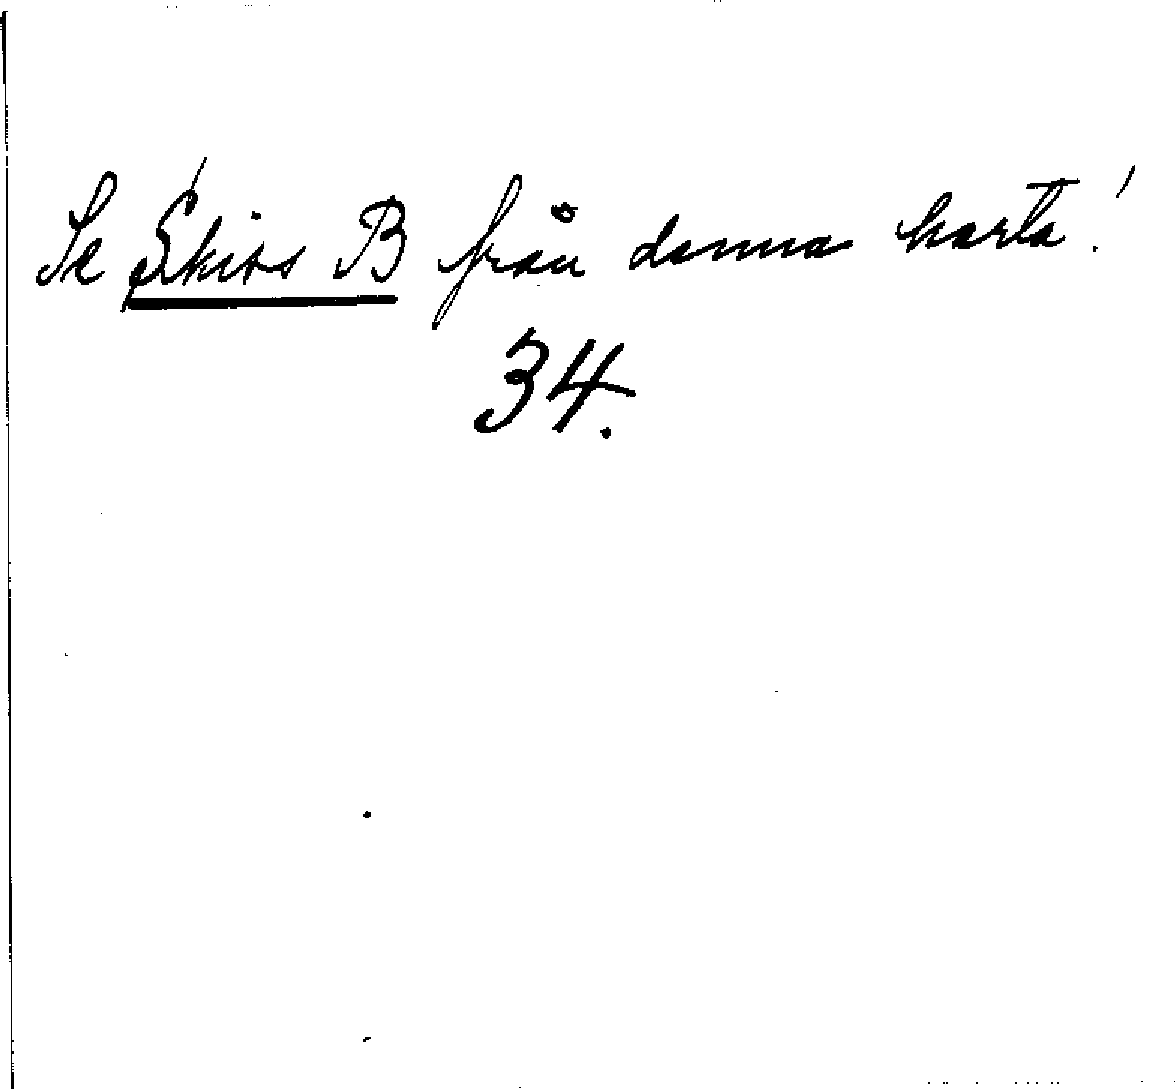 Se Skiss B från denna karta!
34.